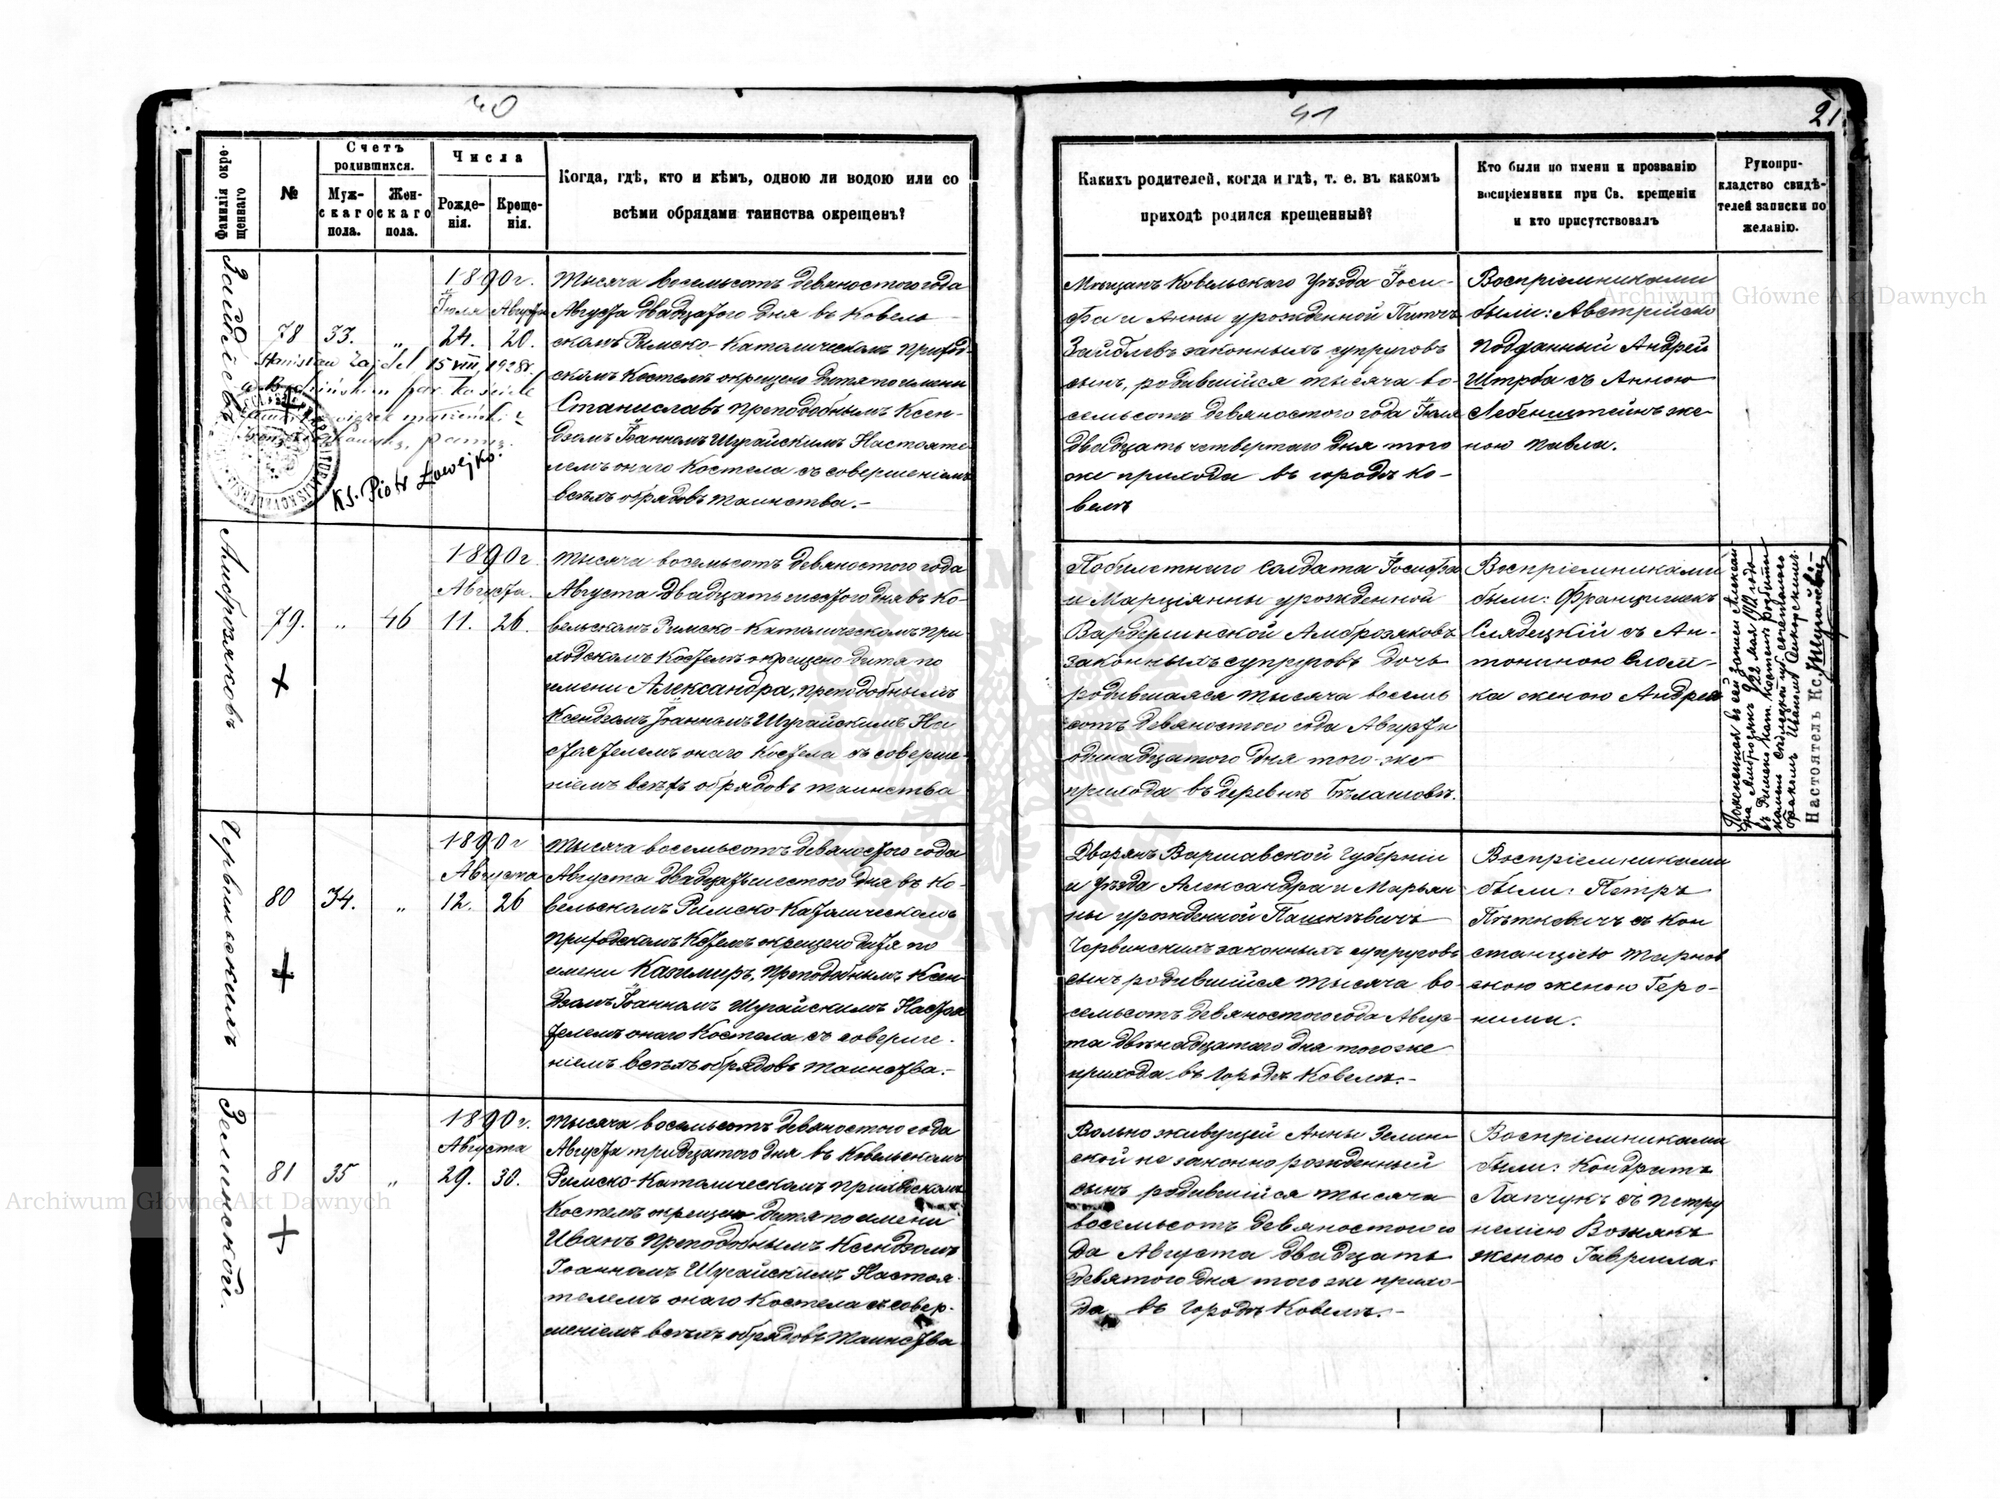 40
Фамилія окре-
щеннаго
№
Счетъ
родившихся.
Муж-
скаго
пола.
Жен-
скаго
пола.
Числа
Рожде-
нія.
Креще-
нія.
Когда, гдѣ, кто и кѣмъ, одною ли водою или со
всѣми обрядами таинства окрещенъ?
78
33.
„
1890 г.
Іюля Августа
24. 20.
Stanisław Zajdel 15 VIII 1928 r.
Ks. Piotr
Тысяча восемьсотъ девяностого года
Августа двадцатого дня въ Ковель-
скомъ Римско-Католическомъ приход-
скомъ Костелѣ окрещено дитя по имени
Станиславъ преподобнымъ Ксен-
дзомъ Іоанномъ Шурайскимъ Настояте-
лемъ онаго Костела съ совершеніемъ
всѣхъ обрядовъ таинства.-
Амброзяковъ
79.
„
46
1890 г.
Августа.
11. 26.
Тысяча восемьсотъ девяностого года
Августа двадцать шестого дня въ Ко-
вельскомъ Римско-Католическомъ при-
ходскомъ Костелѣ окрещено дитя по
имени Александра, преподобнымъ
Ксендзомъ Іоанномъ Шурайскимъ На-
стоятелемъ онаго Костела съ соверше-
ніемъ всѣхъ обрядовъ таинства
80
34.
„
1890 г
Августа
12. 26
Тысяча восемьсотъ девяностого года
Августа двадцать шестого дня въ Ко-
вельскомъ Римско-Католическомъ
приходскомъ Костелѣ окрещено дитя по
имени Казимиръ, преподобнымъ Ксен-
дзомъ Іоанномъ Шурайскимъ Настоя-
телемъ онаго Костела съ соверше-
ніемъ всѣхъ обрядовъ таинства.-
Зелинской.
81
35
„
1890 г.
Августа
29. 30.
Тысяча восемьсотъ девяностого года
Августа тридцатого дня въ Ковельскомъ
Римско-Католическомъ приходскомъ
Костелѣ окрещено дитя по имени
Иванъ преподобнымъ Ксендзомъ
Іоанномъ Шурайскимъ Настоя-
телемъ онаго Костела съ совер-
шеніемъ всѣхъ обрядовъ таинства
41
21.
Какихъ родителей, когда и гдѣ, т. е. въ какомъ
приходѣ родился крещенный?
Кто были по имени и прозванію
воспріемники при Св. крещеніи
и кто присутствовалъ
Рукопри-
кладство свидѣ-
телей записки по
желанію.
Мѣщанъ Ковельскаго Уѣзда Іоси-
фа и Анны урожденной
законныхъ супруговъ
сынъ, родившійся тысяча во-
семьсотъ девяностого года Іюля
двадцать четвертаго дня того
же прихода въ городѣ Ко-
велѣ
Воспріемниками
были: Австрійско
подданный Андрей
Штрба съ Анною
Лебенштейнъ же-
ною Павла.
солдата Іосифа
и Марціянны урожденной
Амброзяковъ
законныхъ супруговъ дочь
родившаяся тысяча восемь
сотъ девяностого года Августа
одинадцатого дня того-же
прихода въ деревнѣ
Воспріемниками
были: Францишекъ
съ Ан-
тониною
ка женою Андрея
Настоятель Кс.
Дворянъ Варшавской Губерніи
и Уѣзда Александра и Марьян
ны урожденной Пашкевичъ
Червинскихъ законныхъ супруговъ
сынъ родившійся тысяча во-
семьсотъ девяностого года Авгус-
та двѣнадцатаго дня того же
прихода въ городѣ Ковелѣ.-
Воспріемниками
были: Петръ
съ Кон
станціею
скою женою Геро-
нима.
Вольно живущей Анны Зелин-
ской не законно рожденный
сынъ родившійся тысяча
восемьсотъ девяностого го
да Августа двадцать
девятого дня того же прихо-
да въ городѣ Ковелѣ.-
Воспріемниками
были: Кондратъ
Лапчукъ съ Петру
нелією Вознякъ
женою Гавриила.
Archiwum Główne Akt Dawnych
Archiwum Główne Akt Dawnych